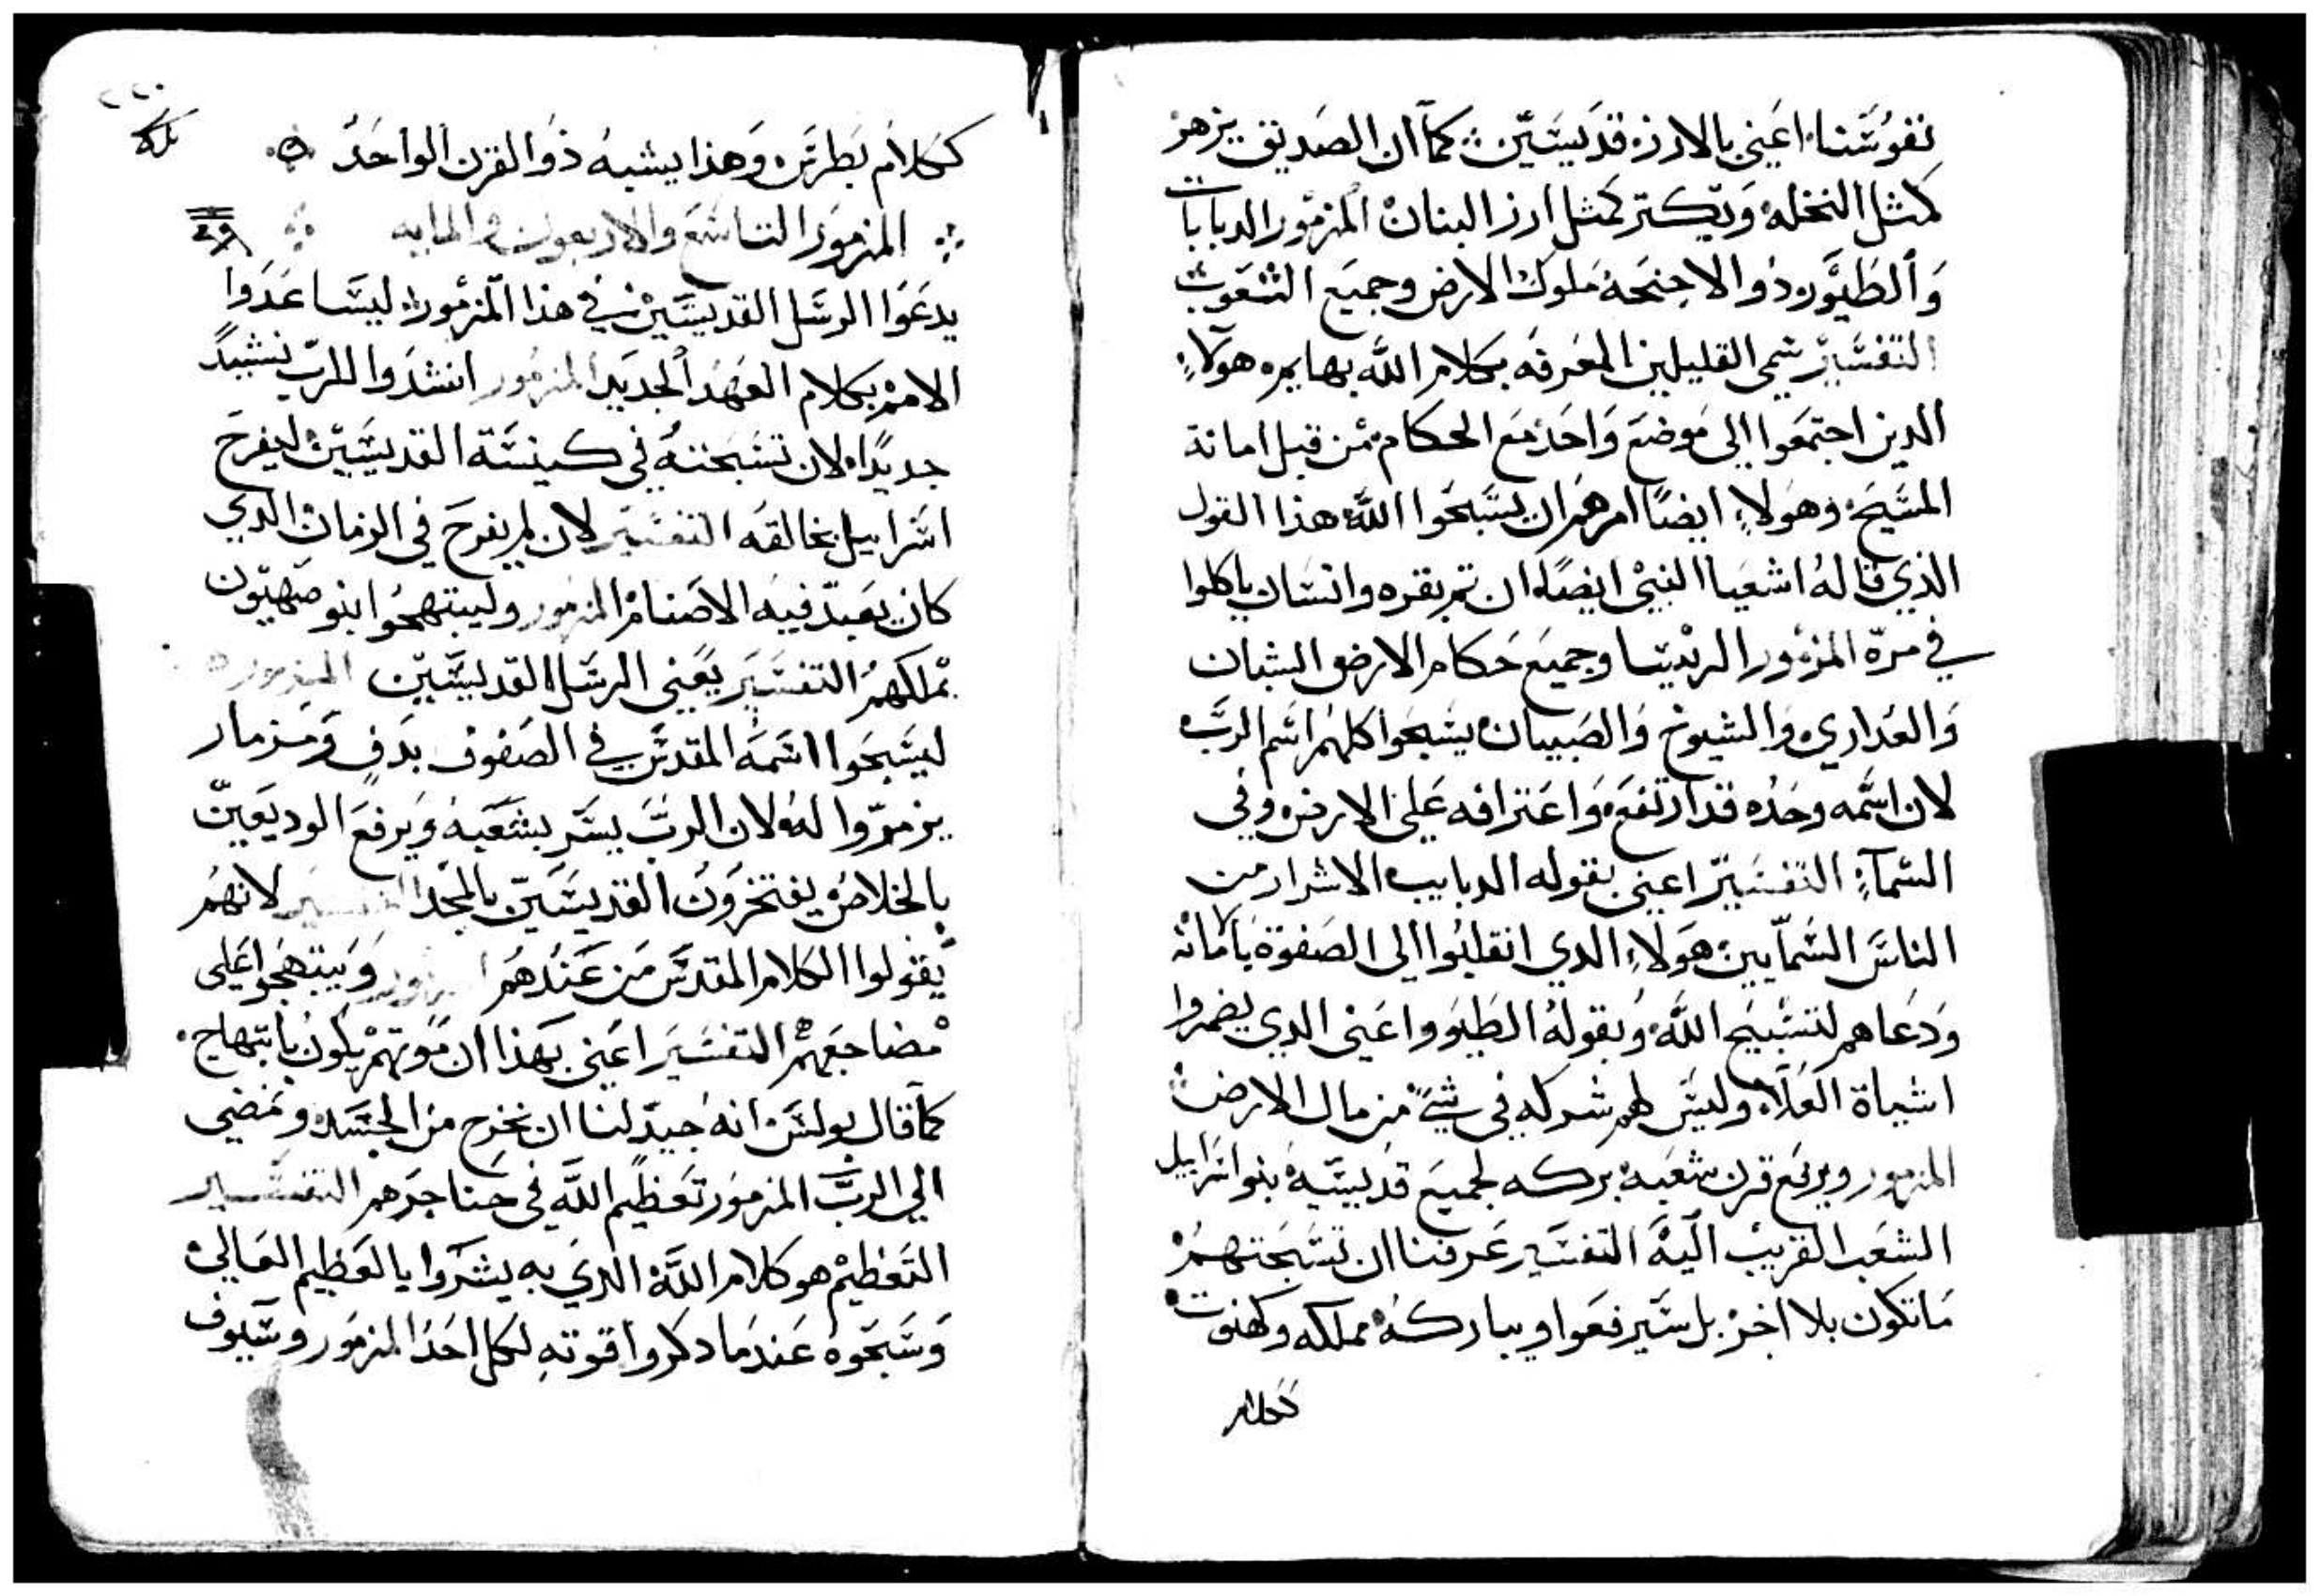 نفوسنا اعني بالارز قديسين كما ان الصديق يزهر
كمثل النخله ويكتر كمثل ارز البنان المزمور الدبابات
والطيور ذوا الاجنحه ملوك الارض وجميع الشعوب
التفسير سمى القليلين المعرفه بكلام الله بهايم هولاء
الدين اجتمعوا الى موضع واحد مع الحكام من قبل امانة
المسيح وهولاء ايضا امرهم ان يسبحوا الله هذا القول
الذي قاله اشعيا النبي ايضا ان نمر بقره وانسان ياكلوا
في مرة المزمور الريسا وجميع حكام الارض الشبان
والعداري والشيوخ والصبيان يسبحوا كلهم اسم الرب
لان اسمه وحده قد ارتفع واعترافه على الارض وفي
السماء التفسير اعني بقوله الدبابيب الاشرار من
الناس السمايين هولاء الدي انقلبوا الى الصفوة بامانة
ودعاهم لتسبيح الله وبقوله الطيور اعني الدي يضمروا
اشياة العلا وليس لهم شركه في شي من مال الارض
المزمور ويرفع قرن شعبه بركه لجميع قديسيه بنو اسراييل
الشعب القريب اليه التفسير عرفنا ان تسبحتهم
ما تكون بلا اجر بل سيرفعوا ويباركه مملكه وكهنوت
ككلام
٢٢٠
ككلام بطرس وهذا يشبه ذوا القرن الواحد
المزمور التاسع والاربعون والمايه
يدعوا الرسل القديسين في هذا المزمور ليساعدوا
الامم بكلام العهد الجديد المزمور انشدوا للرب نشيدً
جديدًا لان تسبحته في كنيسة القديسين ليفرح
اسراييل بخالقه التفسير لان لم يفرح في الزمان الدي
كان يعبد فيه الاصنام المزمور وليبتهجوا بنو صهيون
بملكهم التفسير يعني الرسل القديسين المزمور
ليسبحوا اسمه المقدس في الصفوف بدف ومزمار
يزمروا له لان الرب يسر بشعبه ويرفع الوديعين
بالخلاص يفتخرون القديسين بالمجد التفسير لانهم
يقولوا الكلام المقدس من عندهم المزمور ويبتهجوا على
مضاجعهم التفسير اعني بهذا ان موتهم يكون بابتهاج
كما قال بولس انه جيد لنا ان نخرج من الجسد ونمضي
الي الرب المزمور تعظيم الله في حناجرهم التفسير
التعظيم هو كلام الله الدي به يبشروا بالعظيم العالي
وسبحوه عندما دكروا قوته لكل احد المزمور وسيوف